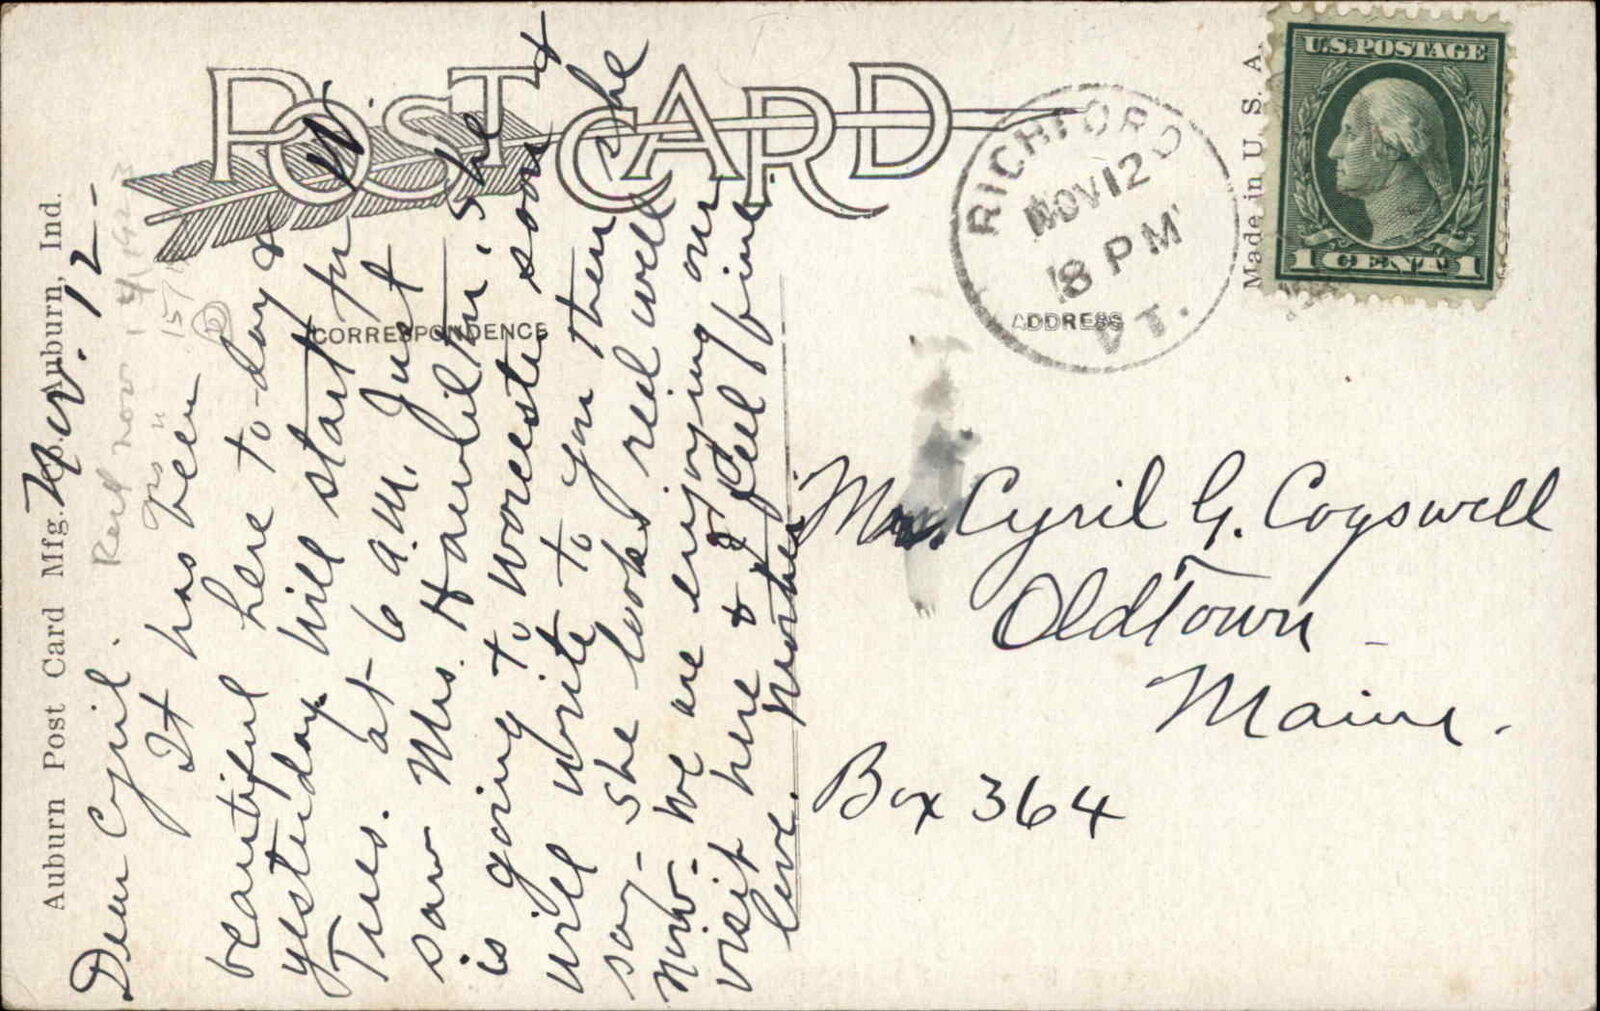 POST CARD
CORRESPONDENCE
ADDRESS
Made in U. S. A.
Auburn Post Card Mfg. Auburn, Ind.
U.S. POSTAGE
1 CENT 1
RICHFORD
NOV 12
8 PM
VT.
Nov. 12 -
Dear Cyril.
It has been
beautiful here to-day &
yesterday. Will start for W.
Tues. at 6 a.m. Just
saw Mrs. Hamilton. She
is going to Worcester soon &
will write to you then she
say - She looks real well
now. We are enjoying our
visit here & I feel fine.
love. Mother
Mr. Cyril G. Cogswell
Oldtown -
Maine.
Box 364